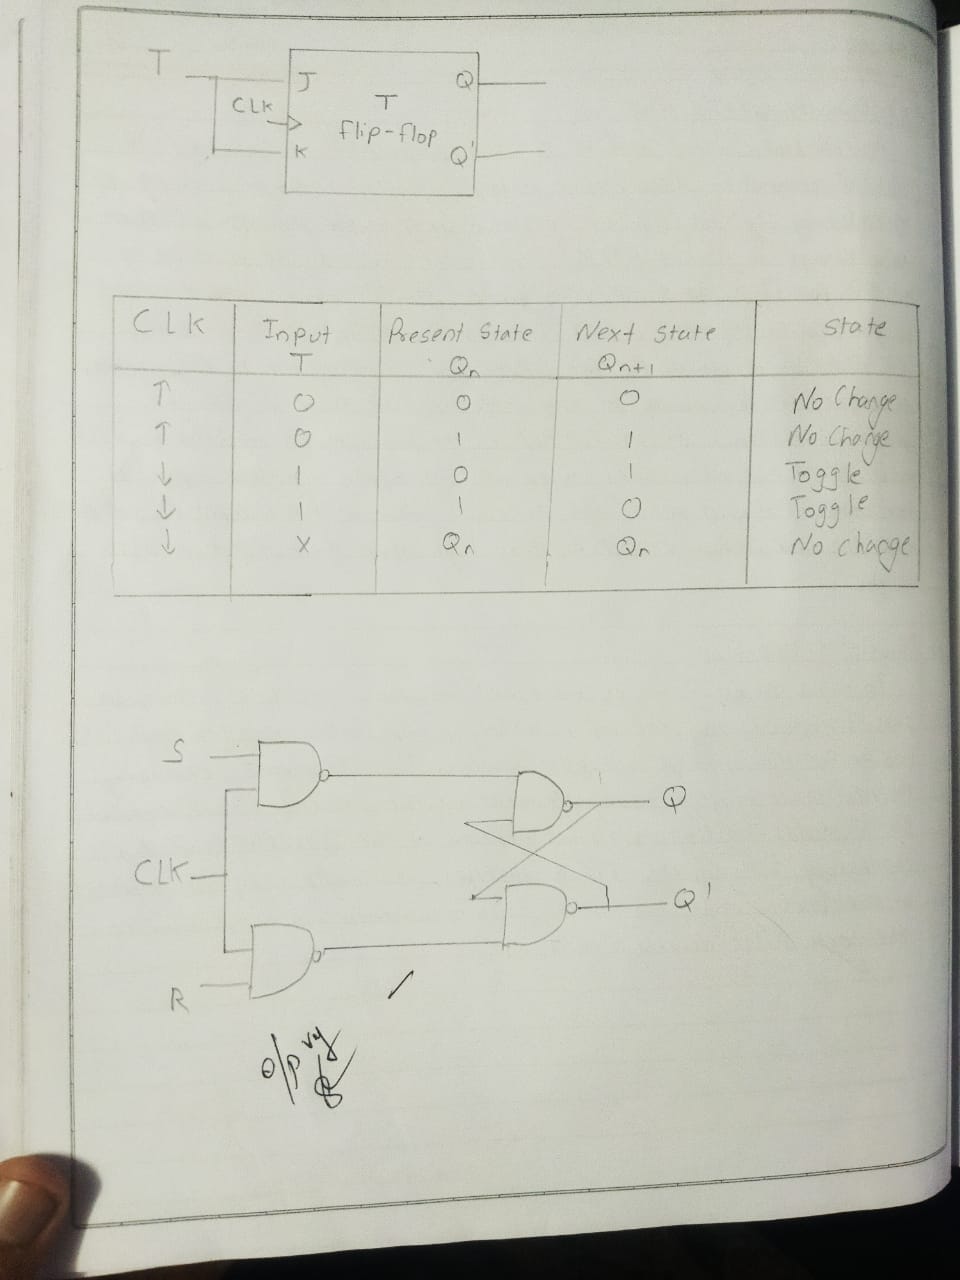 T
J
Q
CLK
T
flip-flop
K
Q'
CLK
Input
T
Present State
Qn
Next State
Qn+1
State
↑ 0 0 0 No Change
↑ 0 1 1 No Change
↓ 1 0 1 Toggle
↓ 1 1 0 Toggle
↓ X Qn Qn No change
S
Q
CLK
Q'
R
O/P